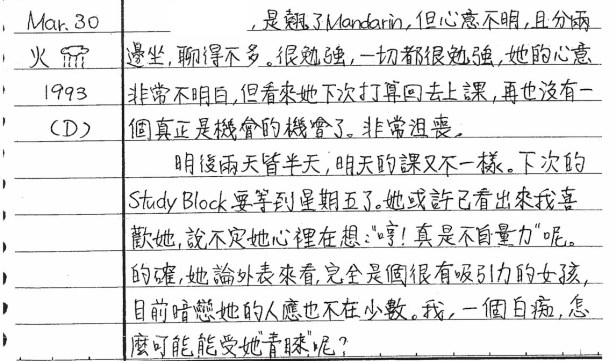 Mar. 30
火
1993
(D)
,是飄了Mandarin,但心意不明,且分兩
邊坐,聊得不多。很勉強,一切都很勉強,她的心意
非常不明白,但看來她下次打算回去上課,再也沒有一
個真正是機會的機會了。非常沮喪。
明後兩天皆半天,明天的課又不一樣。下次的
Study Block要等到星期五了。她或許已看出來我喜
歡她,說不定她心裡在想:"哼!真是不自量力"呢。
的確,她論外表來看,完全是個很有吸引力的女孩,
目前暗戀她的人應也不在少數。我,一個白痴,怎
麼可能能受她"青睞"呢?